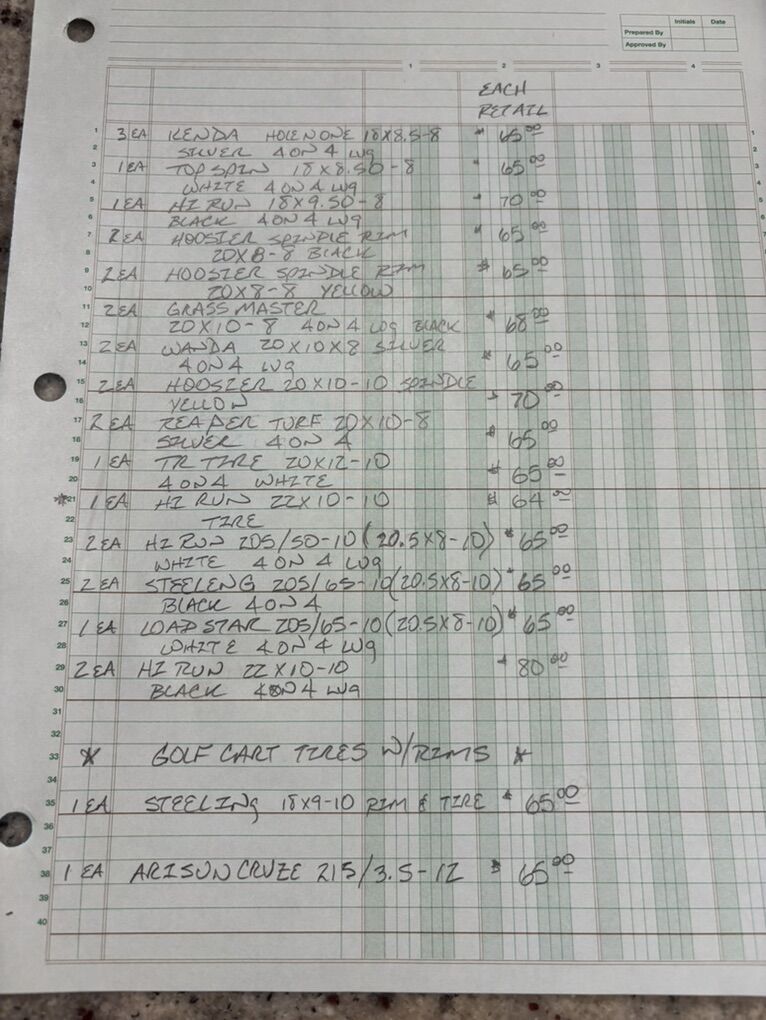 Initials Date
Prepared By
Approved By
1 2 3 4
EACH
RETAIL
1 3 EA KENDA HOLENONE 18X8.5-8 $ 65.00 1
2 SILVER 4 ON 4 LUG 2
3 1 EA TOP SPIN 18X8.50-8 $ 65.00 3
4 WHITE 4 ON 4 LUG 4
5 1 EA HI RUN 18X9.50-8 $ 70.00 5
6 BLACK 4 ON 4 LUG 6
7 2 EA HOOSIER SPINDLE RIM $ 65.00 7
8 20X8-8 BLACK 8
9 2 EA HOOSIER SPINDLE RIM $ 65.00 9
10 20X8-8 YELLOW 10
11 2 EA GRASS MASTER 11
12 20X10-8 4 ON 4 LUG BLACK $ 68.00 12
13 2 EA WANDA 20X10X8 SILVER 13
14 4 ON 4 LUG $ 65.00 14
15 2 EA HOOSIER 20X10-10 SPINDLE 15
16 YELLOW $ 70.00 16
17 2 EA REAPER TURF 20X10-8 17
18 SILVER 4 ON 4 $ 65.00 18
19 1 EA TR TIRE 20X12-10 19
20 4 ON 4 WHITE $ 65.00 20
*21 1 EA HI RUN 22X10-10 $ 64.00 21
22 TIRE 22
23 2 EA HI RUN 205/50-10 (20.5X8-10) $ 65.00 23
24 WHITE 4 ON 4 LUG 24
25 2 EA STEELENG 205/65-10 (20.5X8-10) $ 65.00 25
26 BLACK 4 ON 4 26
27 1 EA LOADSTAR 205/65-10 (20.5X8-10) $ 65.00 27
28 WHITE 4 ON 4 LUG 28
29 2 EA HI RUN 22X10-10 $ 80.00 29
30 BLACK 4 ON 4 LUG 30
31 31
32 32
33 * GOLF CART TIRES W/RIMS * 33
34 34
35 1 EA STEELING 18X9-10 RIM & TIRE $ 65.00 35
36 36
37 37
38 1 EA ARISUN CRUZE 215/3.5-12 $ 65.00 38
39 39
40 40